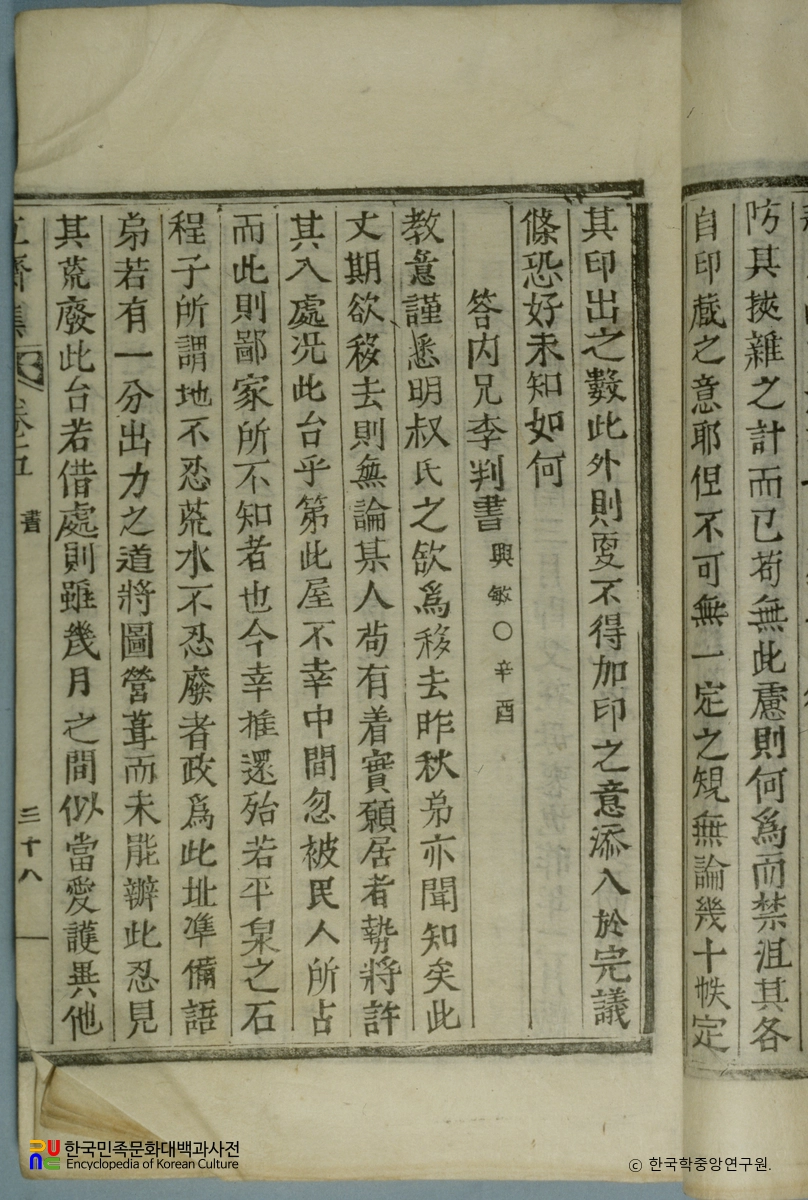 防其挾雜之計而已苟無此慮則何爲而禁沮其各
自印藏之意耶但不可無一定之規無論幾十帙定
其印出之數此外則更不得加印之意添入於完議
條恐好未知如何
答內兄李判書 興敏○辛酉
教意謹悉明叔氏之欲爲移去昨秋弟亦聞知矣此
丈期欲移去則無論某人苟有着實願居者勢將許
其入處況此台乎第此屋不幸中間忽被民人所占
而此則鄙家所不知者也今幸推還殆若平泉之石
程子所謂地不忍荒水不忍廢者政爲此址準備語
弟若有一分出力之道將圖營葺而未能辦此忍見
其荒廢此台若借處則雖幾月之間似當愛護異他
齋集 卷五 書 三十八
한국민족문화대백과사전
Encyclopedia of Korean Culture
ⓒ 한국학중앙연구원.